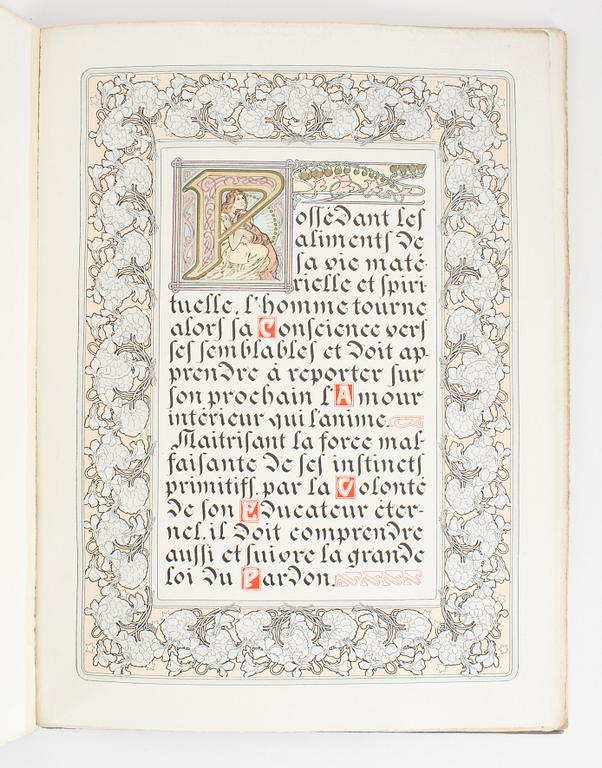 Possédant les
aliments de
sa vie maté
rielle et spiri
tuelle, l'homme tourne
alors sa Conscience vers
ses semblables et doit ap
prendre à reporter sur
son prochain l'Amour
intérieur qui l'anime.
Maitrisant la force mal-
faisante de ses instincts
primitifs, par la Volonté
de son Educateur éter-
nel, il doit comprendre
aussi et suivre la grande
loi du Pardon.